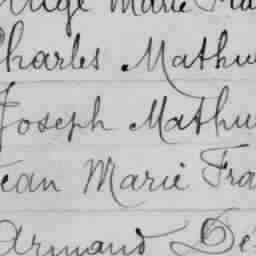 Marie Fra
Charles Mathu
Joseph Mathu
Jean Marie Fra
Armand De